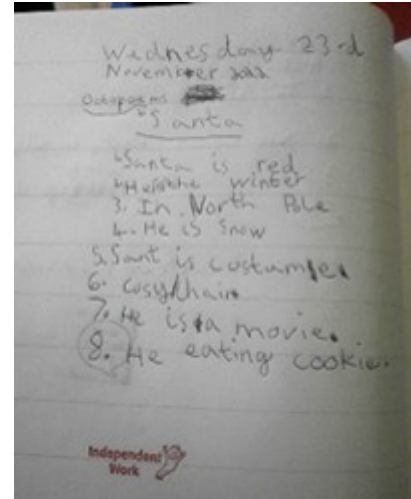 Wednesday 23rd
November 2022
Octopoems
Santa
1. Santa is red
2. He is the winter
3. In North Pole
4. He is Snow
5. Sant is costume.
6. Cosy chair
7. He is a movie.
8. He eating cookie.
Independent
Work